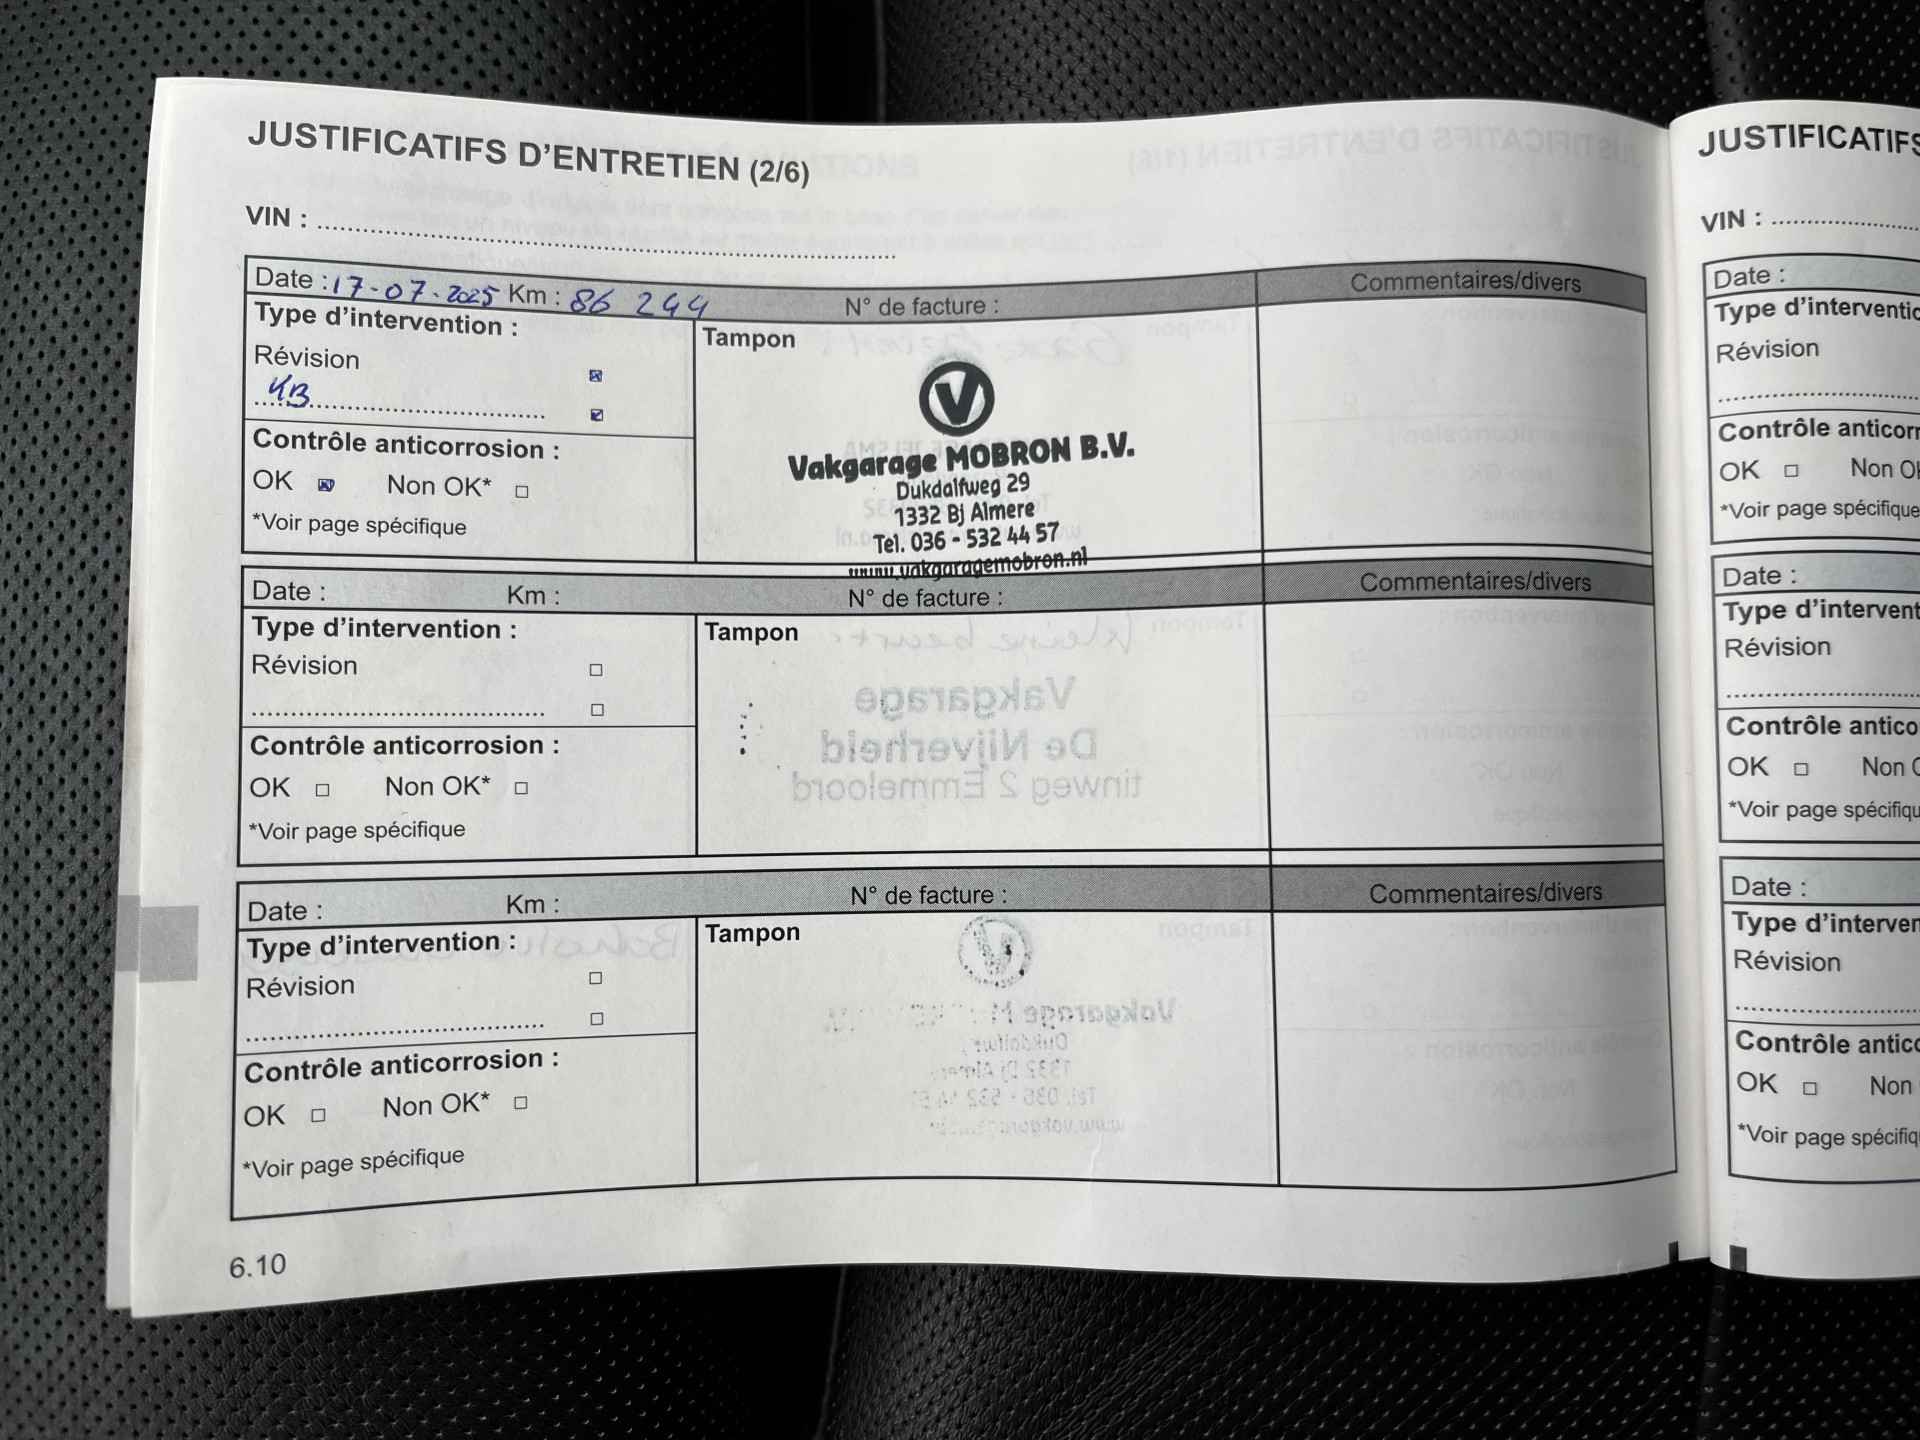 JUSTIFICATIFS D'ENTRETIEN (2/6)
VIN :
Date : 17-07-2025 Km : 86 244 N° de facture : Commentaires/divers
Type d'intervention :
Tampon
Révision
KB
Contrôle anticorrosion :
OK Non OK*
*Voir page spécifique
V
Vakgarage MOBRON B.V.
Dukdalfweg 29
1332 Bj Almere
Tel. 036 - 532 44 57
www.vakgaragemobron.nl
Date : Km : N° de facture : Commentaires/divers
Type d'intervention :
Tampon
Révision
Contrôle anticorrosion :
OK Non OK*
*Voir page spécifique
Vakgarage
De Nijverheid
tinweg 2 Emmeloord
Date : Km : N° de facture : Commentaires/divers
Type d'intervention :
Tampon
Révision
Contrôle anticorrosion :
OK Non OK*
*Voir page spécifique
6.10
JUSTIFICATIFS
VIN :
Date :
Type d'interventio
Révision
Contrôle anticorr
OK Non OK
*Voir page spécifique
Date :
Type d'intervent
Révision
Contrôle antico
OK Non O
*Voir page spécifiqu
Date :
Type d'interven
Révision
Contrôle antico
OK Non
*Voir page spécifiq